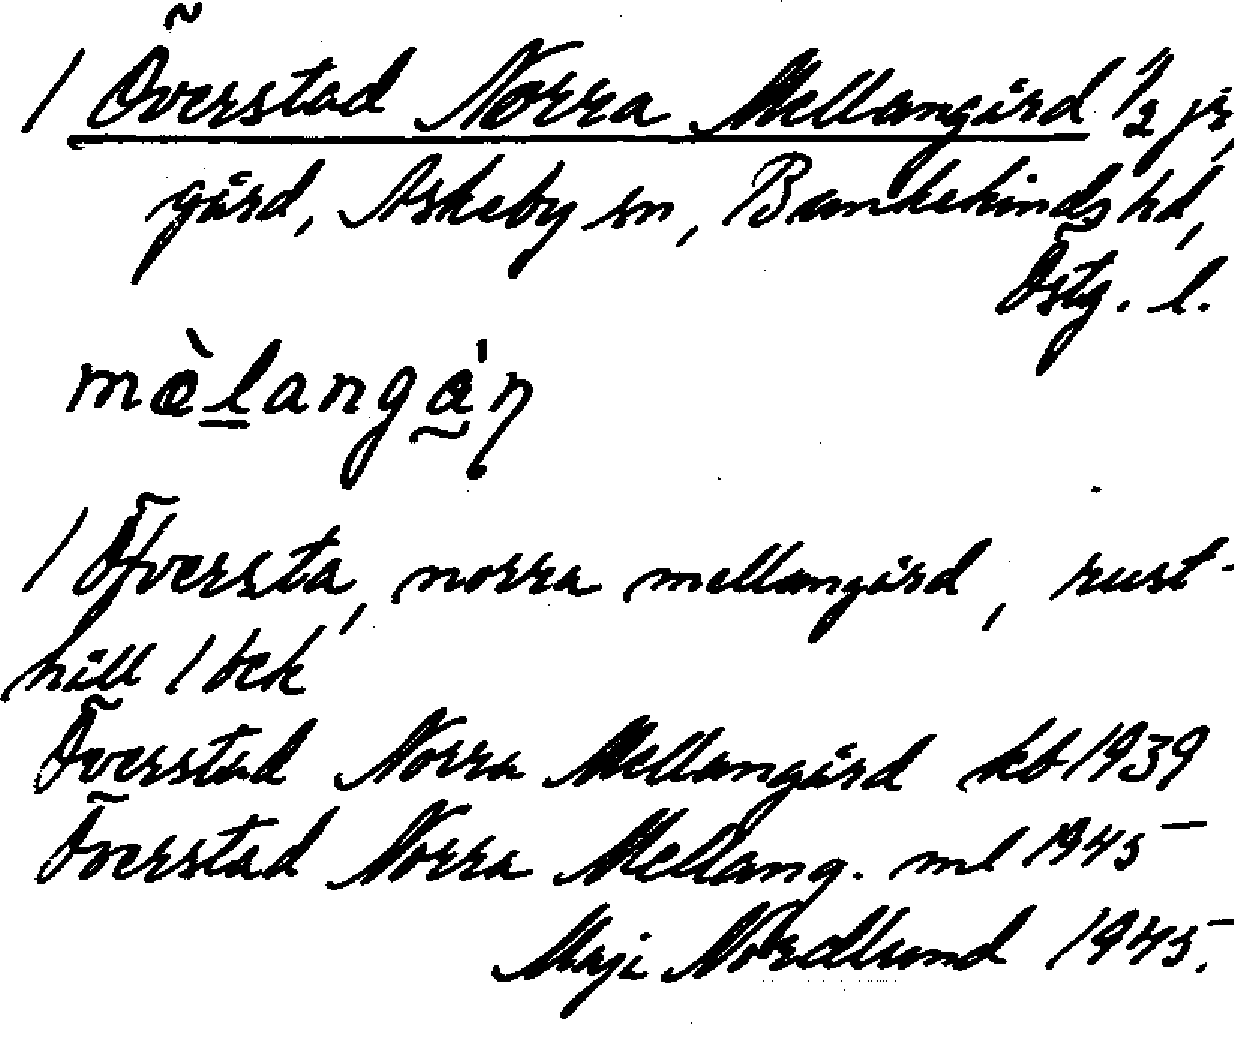 / Överstad Norra Mellangård 1/2 jr,
gård, Askeby sn, Bankekinds hd,
Östg. l.
mèlangá'ṇ
/ Öfversta, norra mellangård, rust-
håll / bck
Överstad Norra Mellangård kb 1939
Överstad Norra Mellang. ml 1945
Maji Nordlund 1945.